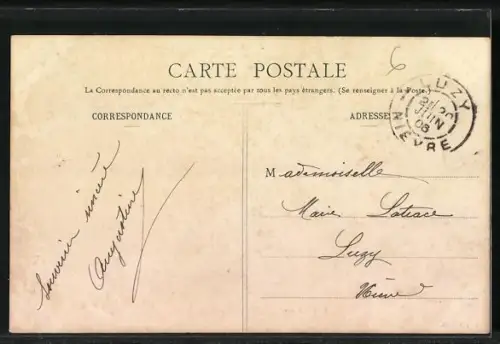 6
CARTE POSTALE
La Correspondance au recto n'est pas acceptée par tous les pays étrangers. (Se renseigner à la Poste)
CORRESPONDANCE
ADRESSE
LUZY
JUIN
06
NIEVRE
Souvenir sincère
Augustine
Mademoiselle
Marie
Luzy
Nièvre